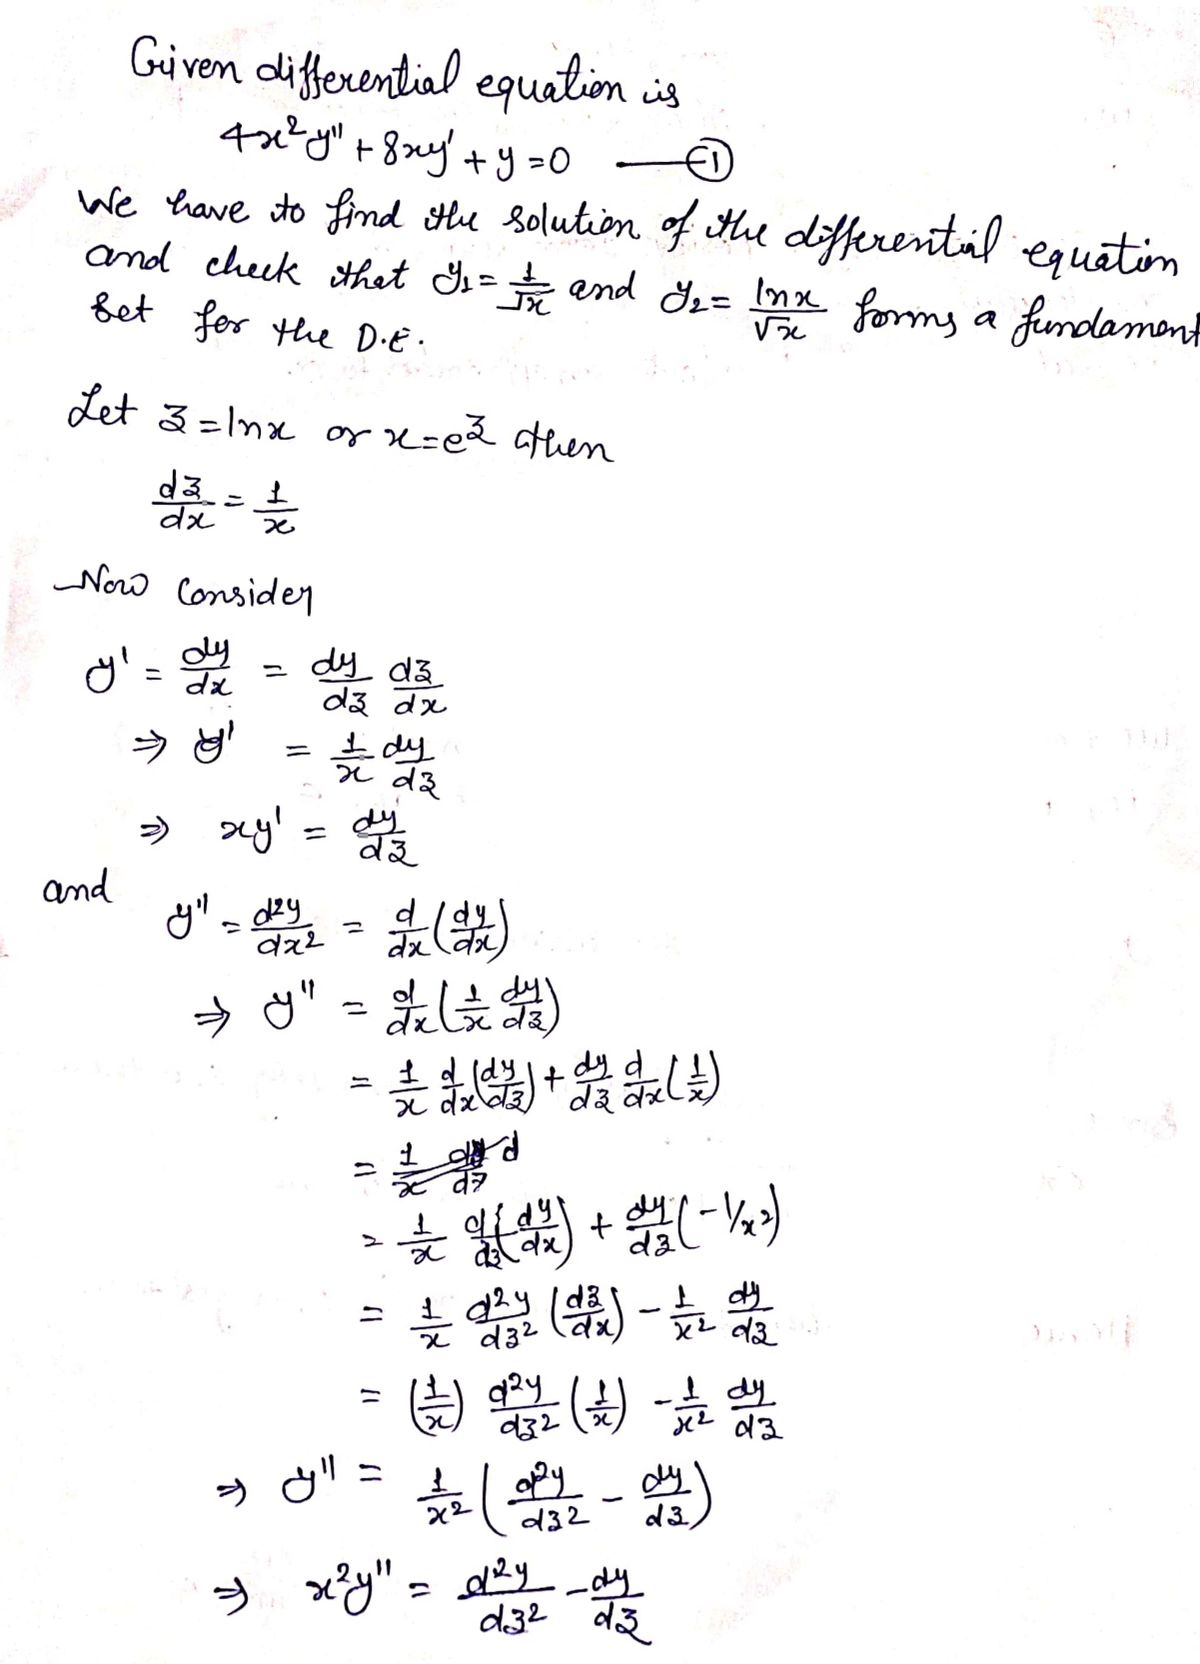 Given differential equation is
4x²y'' + 8xy' + y = 0 —①
We have to find the solution of the differential equation
and check that y₁ = 1/√x and y₂ = ln x/√x forms a fundament
set for the D.E.
Let z = ln x or x = e^z then
dz/dx = 1/x
Now Consider
y' = dy/dx = dy/dz dz/dx
⇒ y' = 1/x dy/dz
⇒ xy' = dy/dz
and
y'' = d²y/dx² = d/dx (dy/dx)
⇒ y'' = d/dx (1/x dy/dz)
= 1/x d/dx (dy/dz) + dy/dz d/dx (1/x)
= 1/x
= 1/x d/dz (dy/dx) + dy/dz (-1/x²)
= 1/x d²y/dz² (dz/dx) - 1/x² dy/dz
= (1/x) d²y/dz² (1/x) - 1/x² dy/dz
⇒ y'' = 1/x² (d²y/dz² - dy/dz)
⇒ x²y'' = d²y/dz² - dy/dz